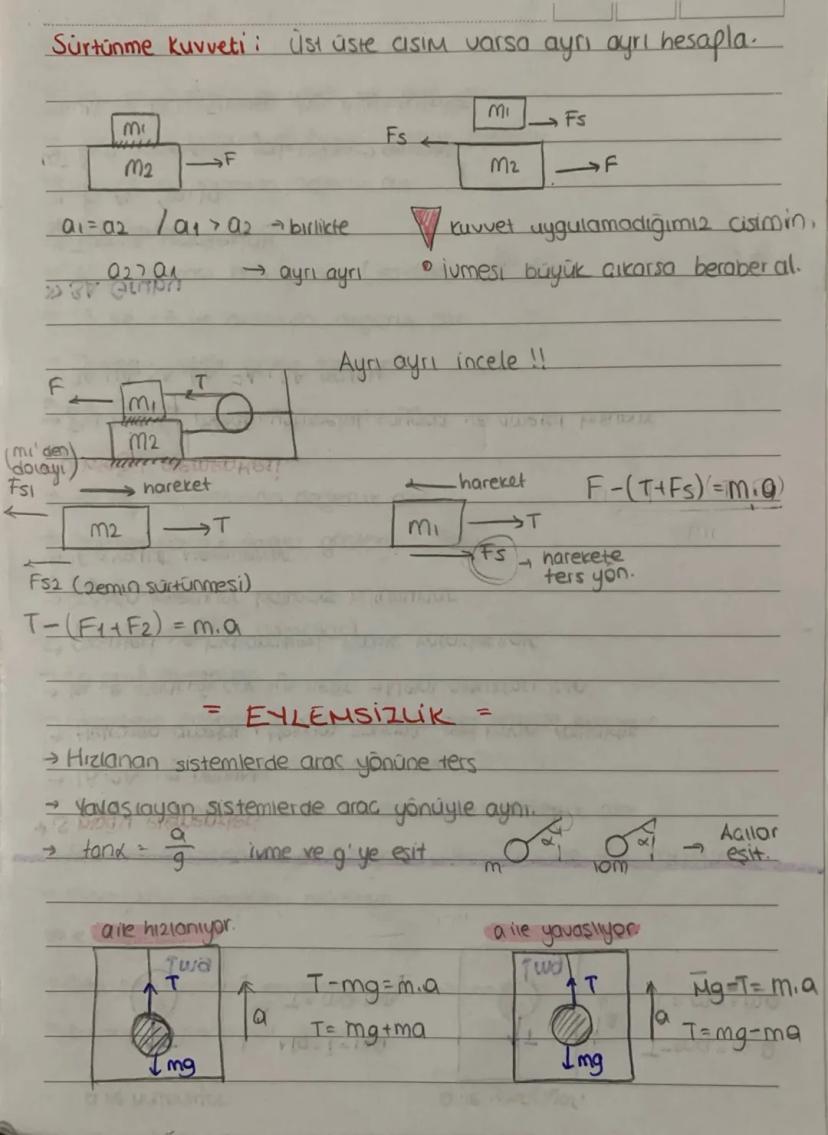 Sürtünme Kuvveti: Üst üste cisim varsa ayrı ayrı hesapla.
m1
m2 → F
m1 → Fs
Fs ←
m2 → F
a1 = a2 / a1 > a2 → birlikte
a2 > a1 → ayrı ayrı
kuvvet uygulamadığımız cisimin,
ivmesi büyük çıkarsa beraber al.
Ayrı ayrı incele !!
F
m1
T
m2
(m1'den dolayı)
Fs1
→ hareket
m2 → T
Fs2 (zemin sürtünmesi)
T - (F1 + F2) = m.a
← hareket
m1 → T
Fs → harekete
ters yön.
F - (T + Fs) = m.a
= EYLEMSİZLİK =
→ Hızlanan sistemlerde araç yönüne ters
→ Yavaşlayan sistemlerde araç yönüyle aynı.
→ tanα = a/g ivme ve g'ye eşit
m α
10m α
→ Açılar
eşit.
a ile hızlanıyor.
T
mg
a
T - mg = m.a
T = mg + ma
a ile yavaşlıyor.
T
mg
a
Mg - T = m.a
T = mg - ma